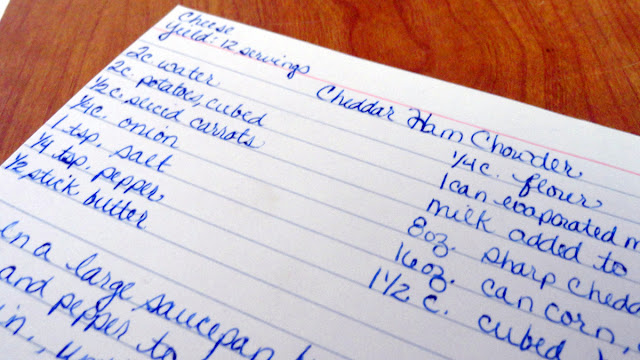 Cheese
Yield: 12 servings
Cheddar Ham Chowder
2c. water
2c. potatoes, cubed
1/2 c. sliced carrots
1/4 c. onion
1 tsp. salt
1/4 tsp. pepper
1/2 stick butter
1/4 c. flour
1 can evaporated m
milk added to
8 oz. sharp chedda
16 oz. can corn,
1 1/2 c. cubed
In a large saucepan
and pepper to
in,